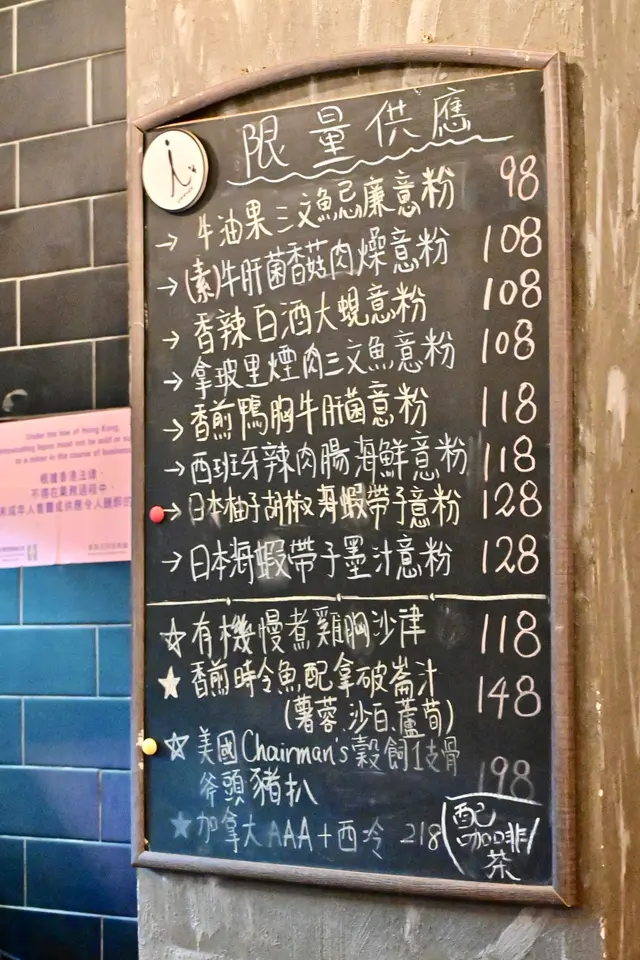 限量供應
→ 牛油果三文魚忌廉意粉 98
→ (素)牛肝菌香菇肉燥意粉 108
→ 香辣白酒大蜆意粉 108
→ 拿玻里煙肉三文魚意粉 108
→ 香煎鴨胸牛肝菌意粉 118
→ 西班牙辣肉腸海鮮意粉 118
→ 日本柚子胡椒海蝦帶子意粉 128
→ 日本海蝦帶子墨汁意粉 128
☆ 有機慢煮雞胸沙律 118
★ 香煎時令魚配拿破崙汁 148
(薯蓉.沙白.蘆荀)
☆ 美國Chairman's穀飼1支骨
斧頭豬扒 198
★ 加拿大AAA+西冷 218
配
咖啡/
茶
Under the law of Hong Kong,
to a minor in the course of business
根據香港法律，
不得在業務過程中，